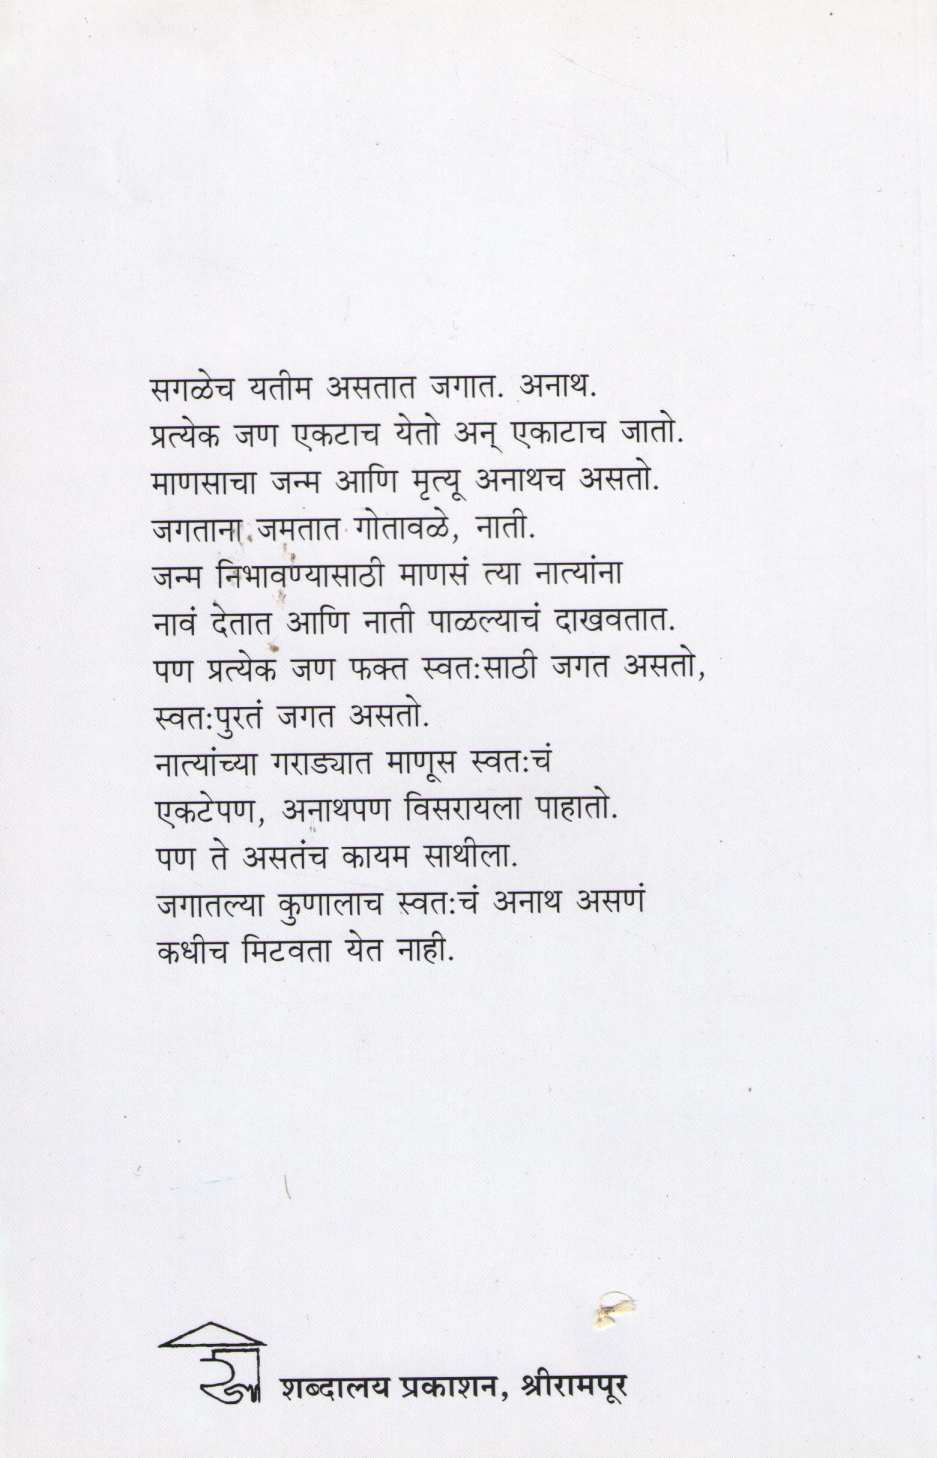 सगळेच यतीम असतात जगात. अनाथ.
प्रत्येक जण एकटाच येतो अन् एकाटाच जातो.
माणसाचा जन्म आणि मृत्यू अनाथच असतो.
जगताना जमतात गोतावळे, नाती.
जन्म निभावण्यासाठी माणसं त्या नात्यांना
नावं देतात आणि नाती पाळल्याचं दाखवतात.
पण प्रत्येक जण फक्त स्वत:साठी जगत असतो,
स्वत:पुरतं जगत असतो.
नात्यांच्या गराड्यात माणूस स्वत:चं
एकटेपण, अनाथपण विसरायला पाहातो.
पण ते असतंच कायम साथीला.
जगातल्या कुणालाच स्वत:चं अनाथ असणं
कधीच मिटवता येत नाही.
शब्दालय प्रकाशन, श्रीरामपूर